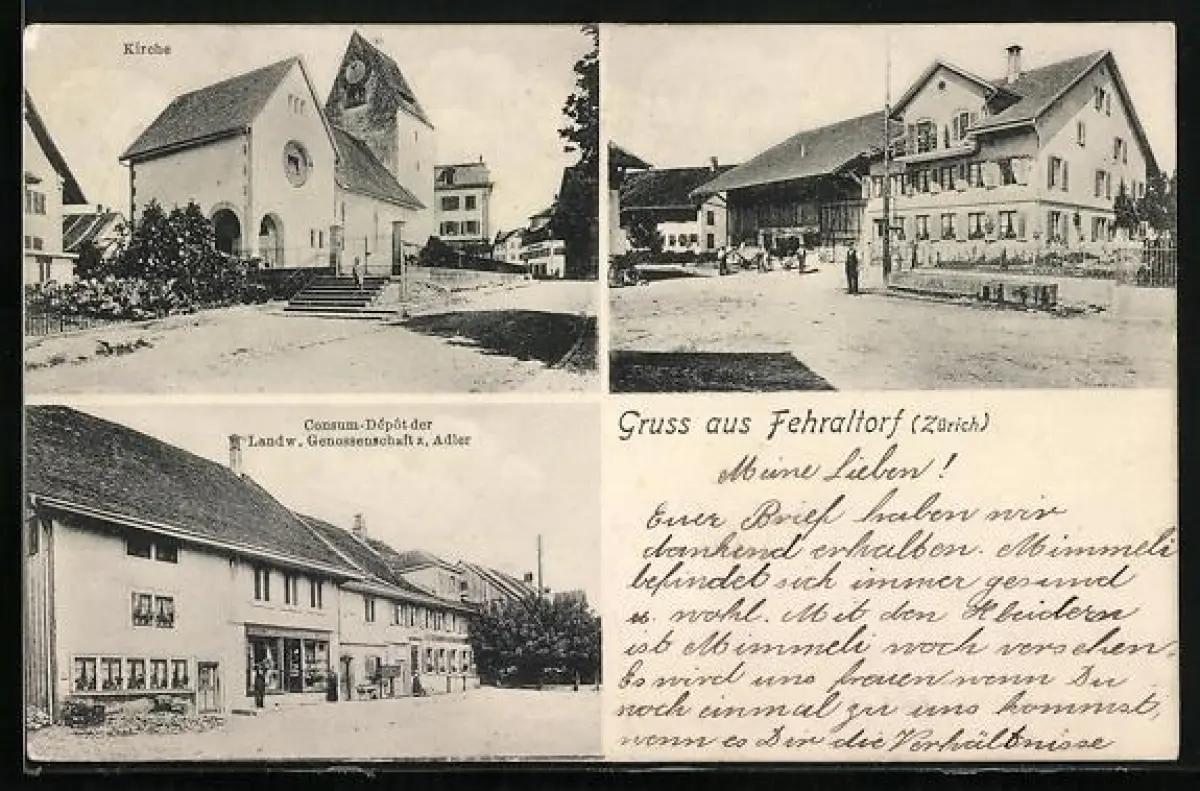 Kirche
Consum-Dépôt der
Landw. Genossenschaft z. Adler
Gruss aus Fehraltorf (Zürich)
Meine Lieben!
Euer Brief haben wir
dankend erhalten. Mimmeli
befindet sich immer gesund
u. wohl. Mit den Kleidern
ist Mimmeli noch versehen.
Es wird uns freuen wenn Du
noch einmal zu uns kommst,
wenn es Dir die Verhältnisse